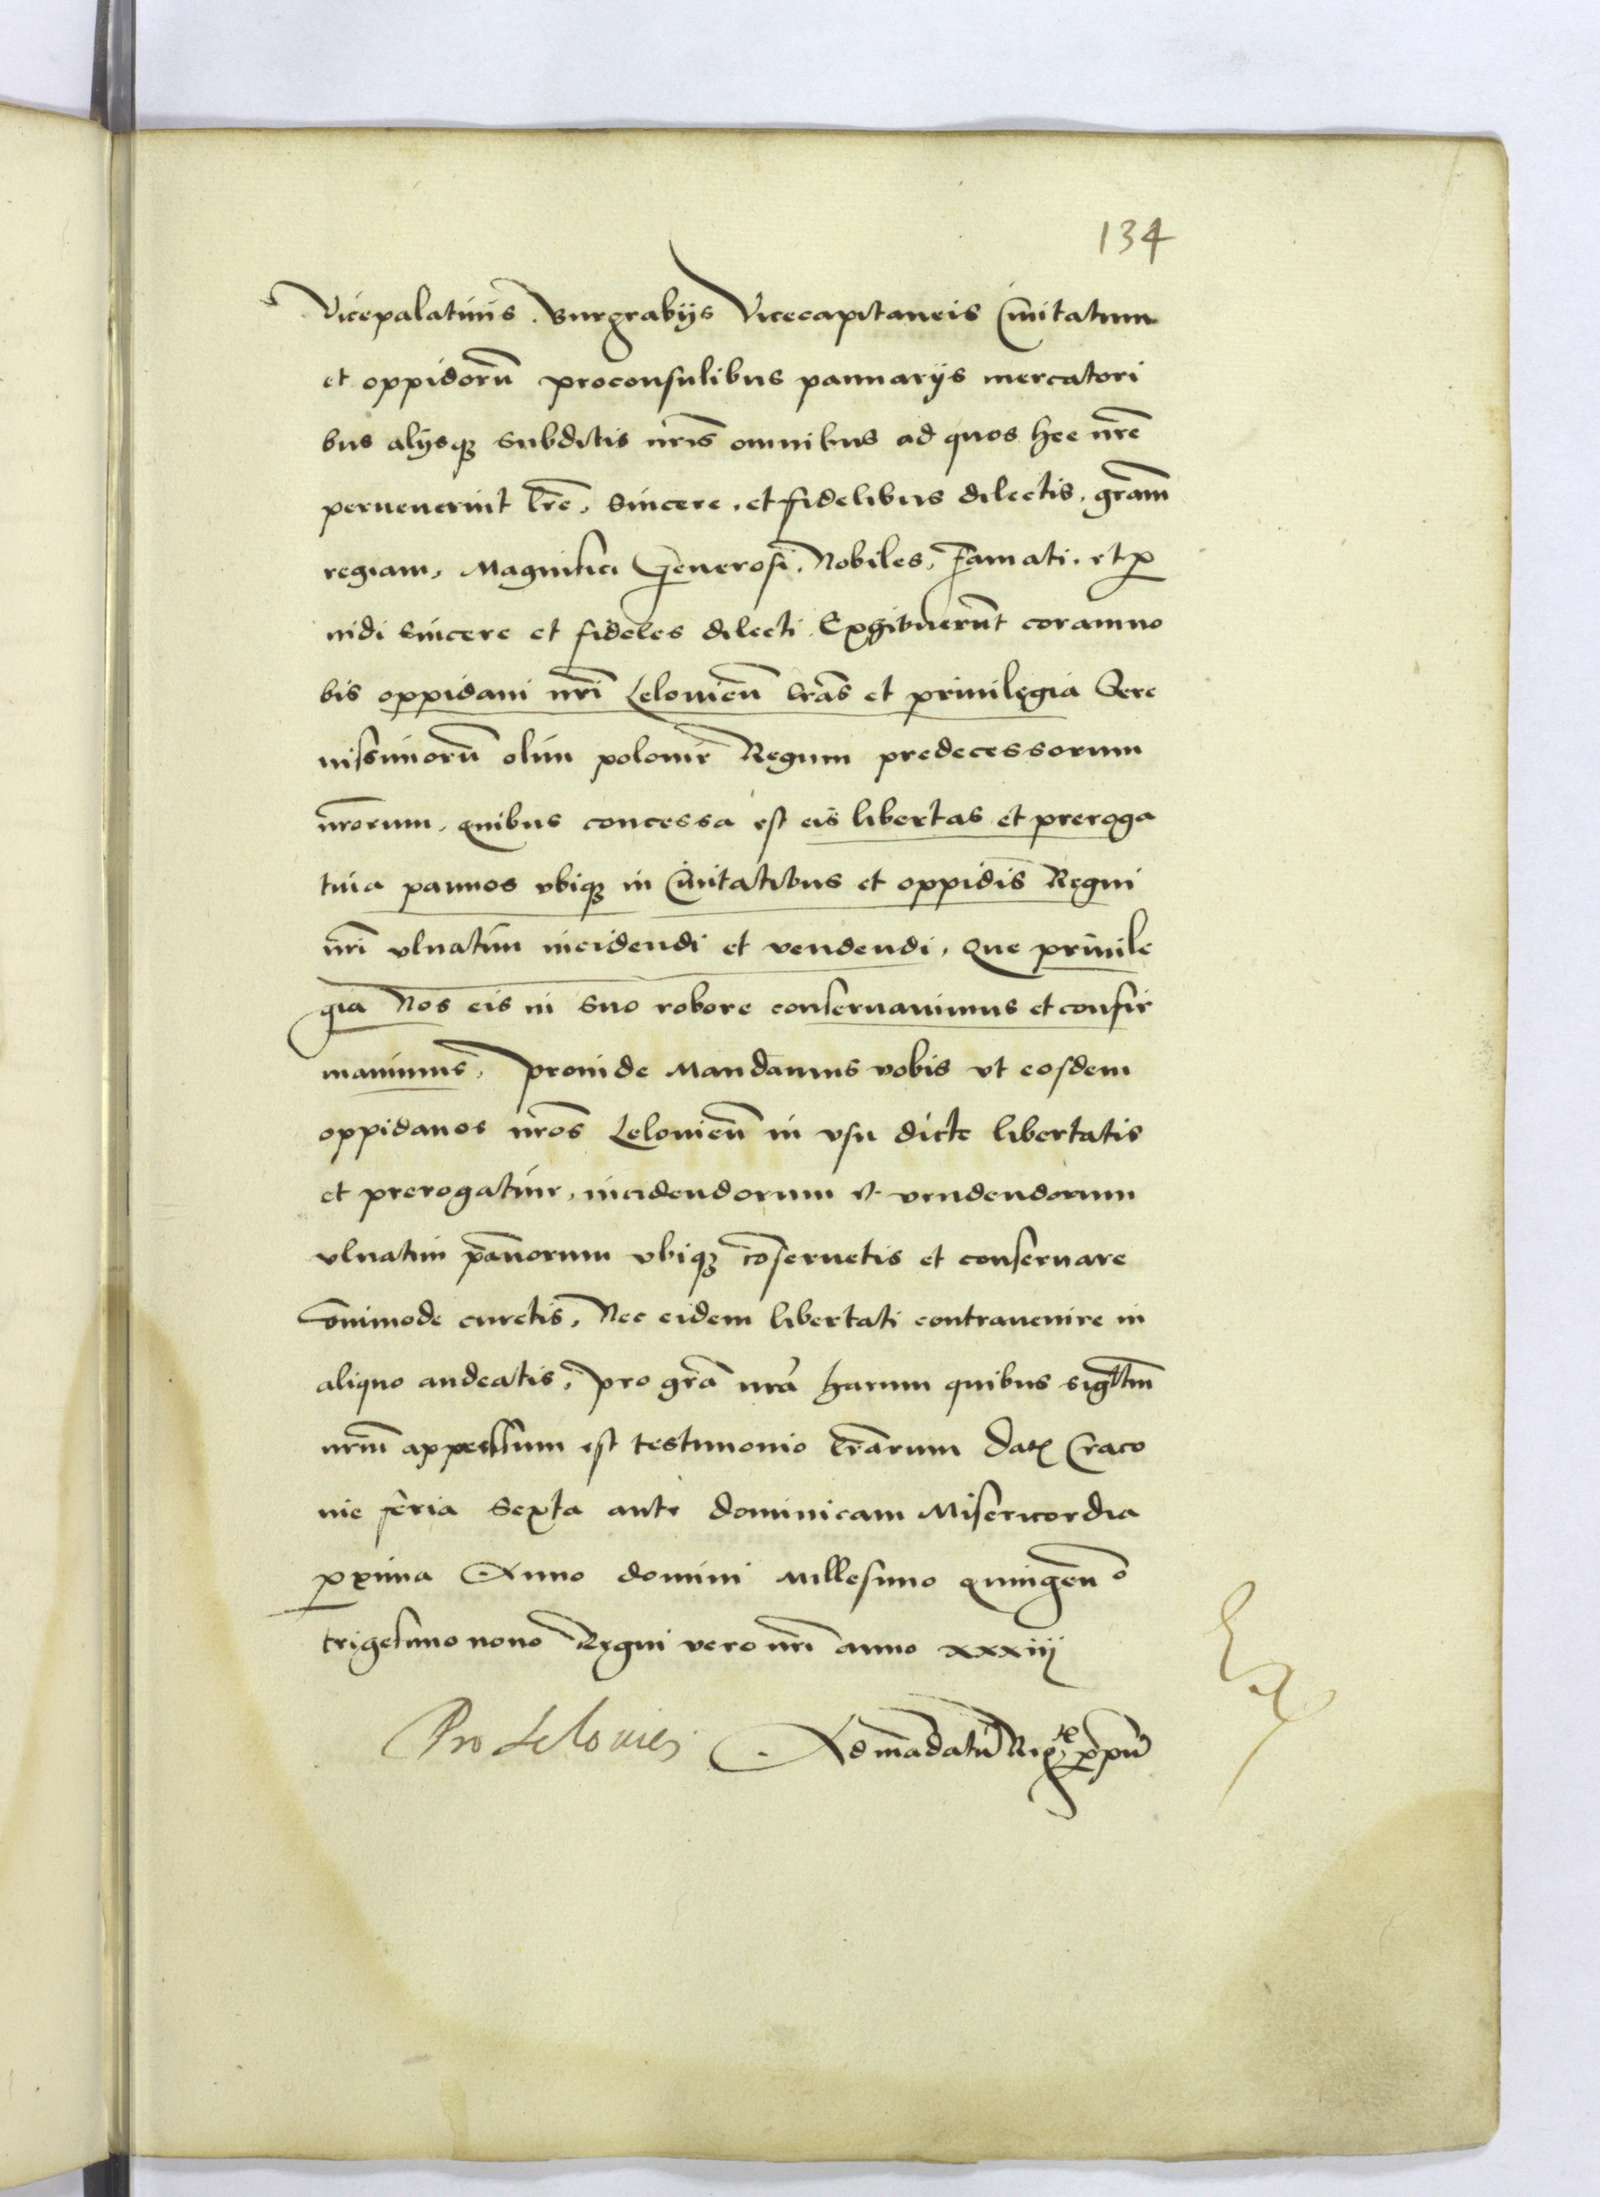 134
Vicepalatinis. Burgrabijs Vicecapitaneis Ciuitatum
et oppidorũ proconsulibus pannarijs mercatori
bus alijsqꝫ subditis nr̃is omnibus ad quos hee nr̃e
peruenerint lr̃e, sincere, et fidelibus dilectis, gr̃am
regiam, Magnifici Generosi, Nobiles, Famati, et ꝓ
uidi sincere et fideles dilecti Exhibuerũt coram no
bis oppidani nr̃i Lelouieñ lr̃as et priuilegia Sere
nissimorũ olim polonie Regum predecessorum
nr̃orum, quibus concessa est eis libertas et preroga
tiua pannos vbiqꝫ in Ciuitatibus et oppidis Regni
nr̃i vlnatim incidendi et vendendi, Que priuile
gia Nos eis in suo robore conseruauimus et confir
mauimus, proinde Mandamus vobis vt eosdem
oppidanos nr̃os Lelouieñ in vsu dicte libertatis
et prerogatiue, incidendorum et vendendorum
vlnatim pãnorum vbiqꝫ cõseruetis et conseruare
õnimode curetis, Nec eidem libertati contrauenire in
aliquo audeatis, pro gr̃a nr̃a harum quibus sigllm̃
nr̃um appressum est testimonio lr̃arum Datꝫ Craco
uie feria sexta ante dominicam Misericordia
ꝓxima Anno domini Millesimo quingen^o
trigesimo nono Regni vero nr̃i anno xxxiij
Pro Lelouieñ Ad mãdatũ Rigͤ ꝓpũ